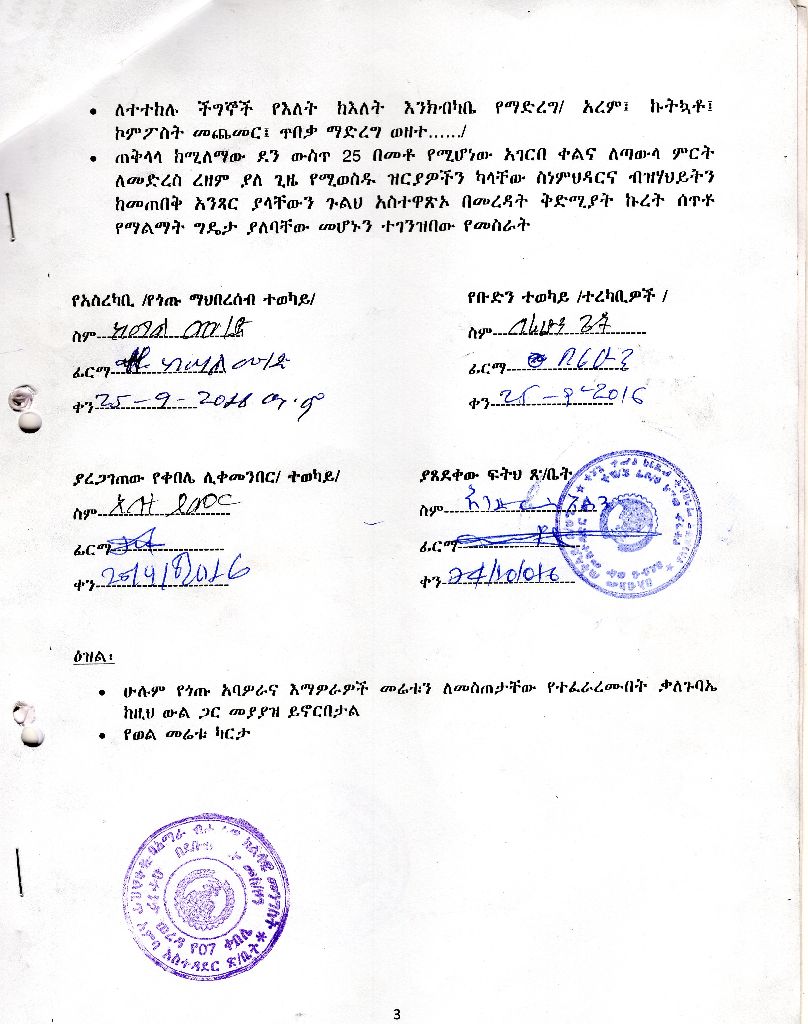 • ለተተከሉ ችግኞች የእለት ከእለት እንክብካቤ የማድረግ/ አረም፤ ኩትኳቶ፤
ኮምፖስት መጨመር፤ ጥበቃ ማድረግ ወዘተ....../
• ጠቅላላ ከሚለማው ደን ውስጥ 25 በመቶ የሚሆነው አገርበ ቀልና ለጣውላ ምርት
ለመድረስ ረዘም ያለ ጊዜ የሚወስዱ ዝርያዎችን ካላቸው ስነምህዳርና ብዝሃህይትን
ከመጠበቅ አንጻር ያላቸውን ጉልህ አስተዋጽኦ በመረዳት ቅድሚያት ኩረት ሰጥቶ
የማልማት ግዴታ ያለባቸው መሆኑን ተገንዝበው የመስራት
የአስረካቢ /የጎጡ ማህበረሰብ ተወካይ/
ስም
ፊርማ
ቀን 25-9-2016 ዓ.ም
የቡድን ተወካይ /ተረካቢዎች /
ስም
ፊርማ
ቀን 25-9-2016
ያረጋገጠው የቀበሌ ሊቀመንበር/ ተወካይ/
ስም
ፊርማ
ቀን 25/9/2016
ያጸደቀው ፍትህ ጽ/ቤት
ስም
ፊርማ
ቀን 24/10/016
ዕዝል፡
• ሁሉም የጎጡ አባዎራና እማዎራዎች መሬቱን ለመስጠታቸው የተፈራረሙበት ቃለጉባኤ
ከዚህ ውል ጋር መያያዝ ይኖርበታል
• የወል መሬቱ ካርታ
ወረዳ የ07 ቀበሌ
አስተዳደር ጽ/ቤት
3